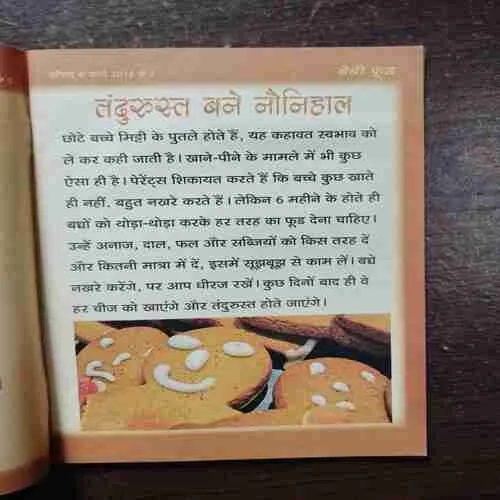 बेबी फूड
तंदुरुस्त बने नौनिहाल
छोटे बच्चे मिट्टी के पुतले होते हैं, यह कहावत स्वभाव को
ले कर कही जाती है। खाने-पीने के मामले में भी कुछ
ऐसा ही है। पेरेंट्स शिकायत करते हैं कि बच्चे कुछ खाते
ही नहीं, बहुत नखरे करते हैं। लेकिन 6 महीने के होते ही
बच्चों को थोड़ा-थोड़ा करके हर तरह का फूड देना चाहिए।
उन्हें अनाज, दाल, फल और सब्जियों को किस तरह दें
और कितनी मात्रा में दें, इसमें सूझबूझ से काम लें। बच्चे
नखरे करेंगे, पर आप धीरज रखें। कुछ दिनों बाद ही वे
हर चीज को खाएंगे और तंदुरुस्त होते जाएंगे।